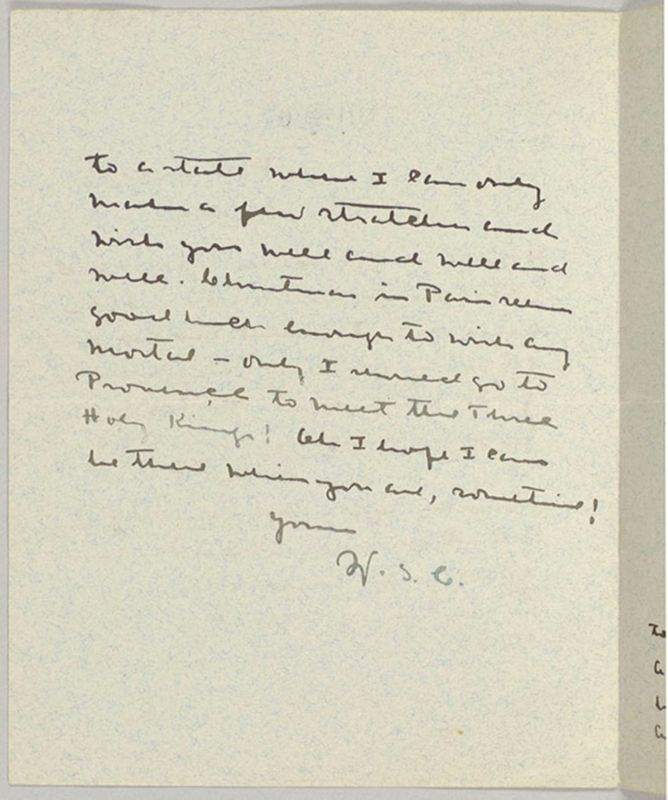 to a state where I can only
make a few scratches and
wish you well and well and
well. Christmas in Paris seems
good luck enough to wish any
mortal – only I would go to
Provence to meet the Three
Holy Kings! Oh I hope I can
be there when you are, sometime!
Yours
W. S. C.